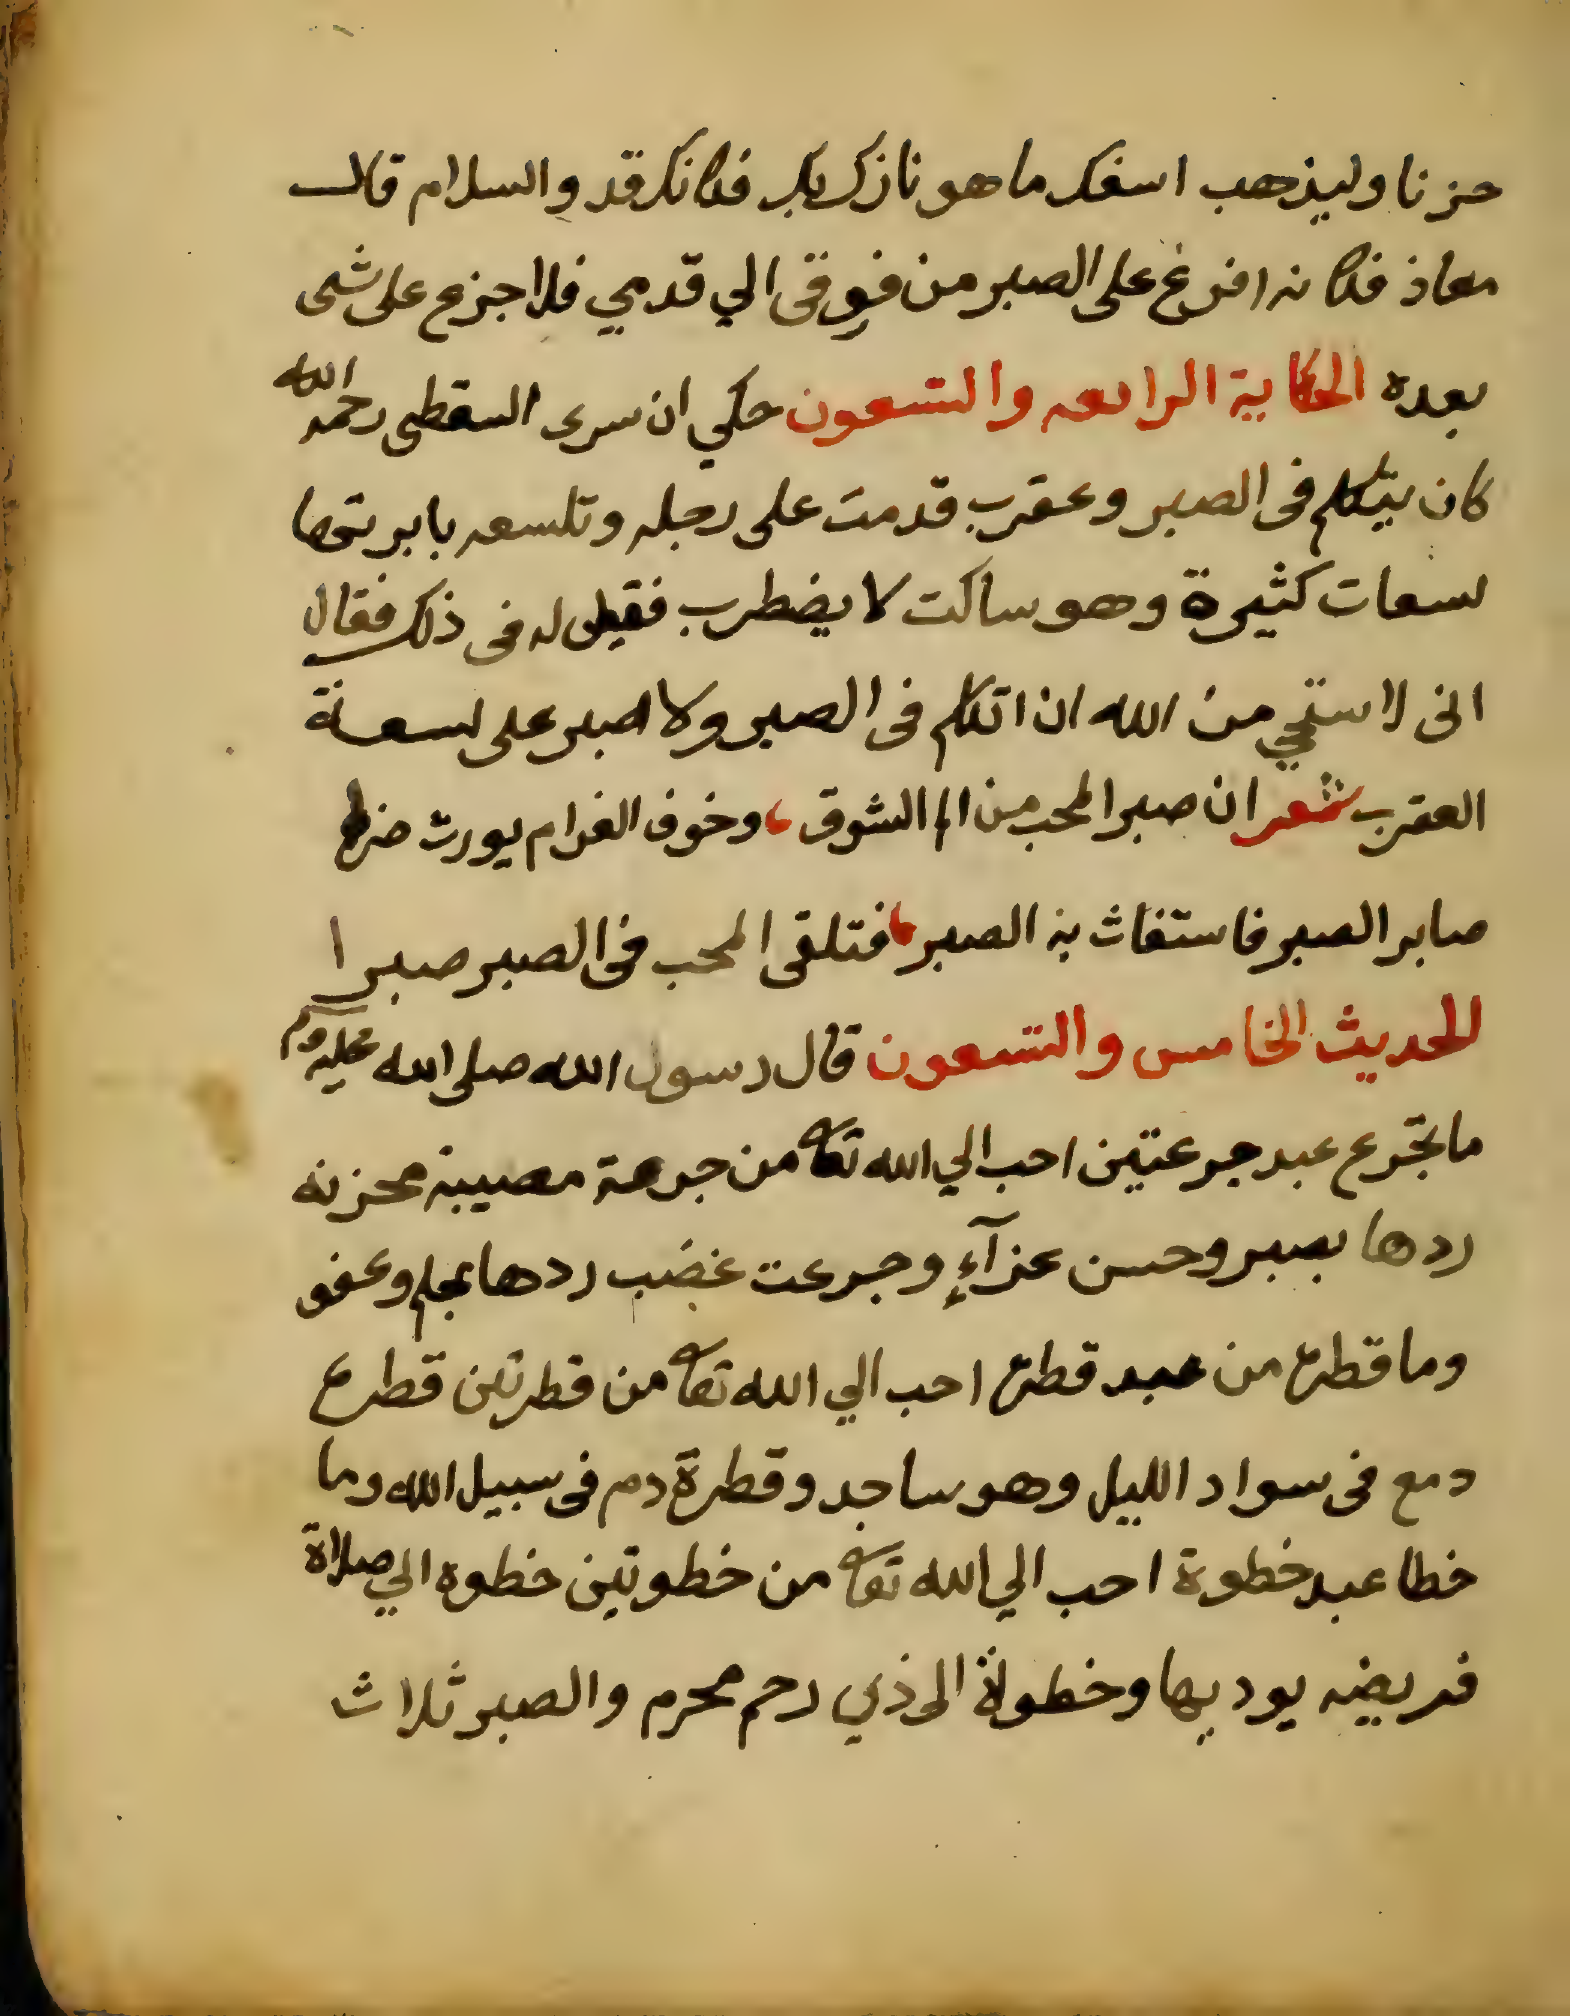 حزنا وليذهب اسفك ما هو نازل بك فكانك قد والسلام قال
معاذ فكانه افرغ على الصبر من فوقى الي قدمي فلا اجزع على شى
بعده الحكاية الرابعه والتسعون حكي ان سرى السقطى رحمه الله
كان يتكلم فى الصبر وعقرب قدمت على رجله وتلسعه بابرتها
لسعات كثيرة وهو ساكت لا يضطرب فقيل له فى ذلك فقال
انى لاستحي من الله ان اتكلم فى الصبر ولا اصبر على لسعة
العقرب شعر ان صبر المحب من الم الشوق، وخوف الغرام يورث ضرا
صابر الصبر فاستغاث به الصبر، فتلقى المحب فى الصبر صبرا
الحديث الخامس والتسعون قال رسول الله صلى الله عليه وم
ما تجرع عبد جرعتين احب الي الله تعا من جرعة مصيبة محزنه
ردها بصبر وحسن عزآءٍ وجرعت غضب ردها بحلم وعفو
وما قطرة من عبد قطرة احب الي الله تعا من قطرتين قطرة
دمع فى سواد الليل وهو ساجد وقطرة دم فى سبيل الله وما
خطا عبد خطوة احب الي الله تعا من خطوتين خطوه الي صلاة
فريضه يوديها وخطوة الى ذي رحم محرم والصبر ثلاث